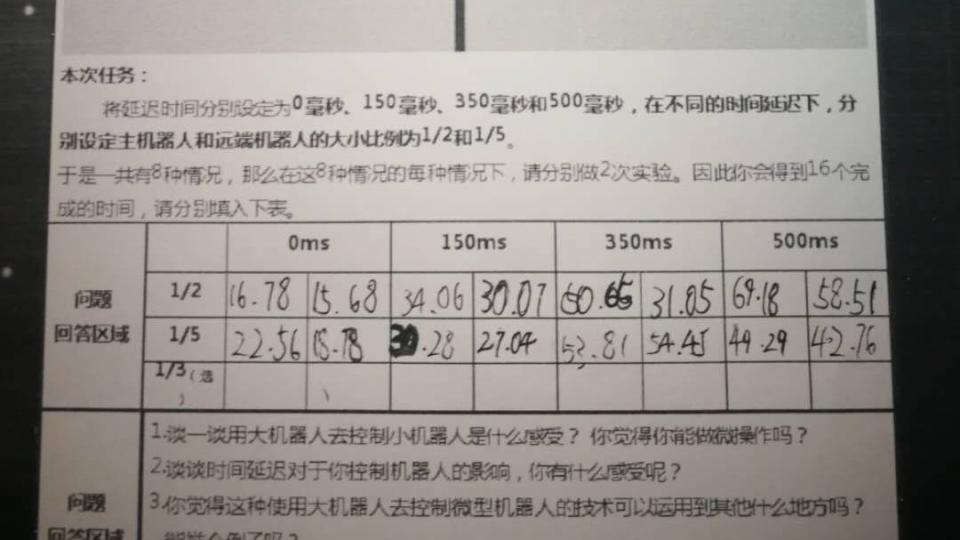 本次任务：
将延迟时间分别设定为0毫秒、150毫秒、350毫秒和500毫秒，在不同的时间延迟下，分
别设定主机器人和远端机器人的大小比例为1/2和1/5。
于是一共有8种情况，那么在这8种情况的每种情况下，请分别做2次实验。因此你会得到16个完
成的时间，请分别填入下表。
0ms 150ms 350ms 500ms
问题
回答区域
1/2 16.78 15.68 34.06 30.07 31.05 69.18 58.51
1/5 22.56 18.78 .28 27.04 53.81 54.45 49.29 42.76
1/3（选
）
1.谈一谈用大机器人去控制小机器人是什么感受？你觉得你能做微操作吗？
2.谈谈时间延迟对于你控制机器人的影响，你有什么感受呢？
问题
3.你觉得这种使用大机器人去控制微型机器人的技术可以运用到其他什么地方吗？
回答区域
能举个例子吗？